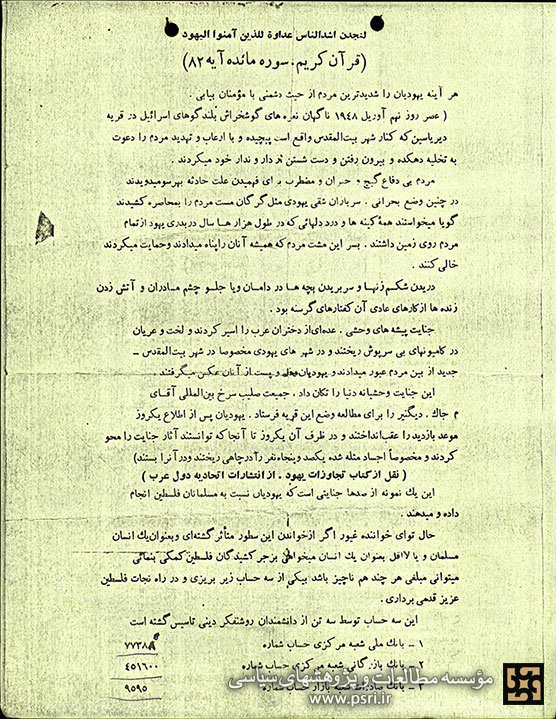 لتجدن اشدالناس عداوة للذین آمنوا الیهود
(قرآن کریم. سوره مائده آیه ۸۲)
هر آینه یهودیان را شدیدترین مردم از حیث دشمنی با مؤمنان بیابی .
( عصر روز نهم آوریل ۱۹۴۸ ناگهان نعره های گوشخراش بلندگوهای اسرائیل در قریه
دیریاسین که کنار شهر بیت‌المقدس واقع است پیچیده و با ارعاب و تهدید مردم را دعوت
به تخلیه دهکده و بیرون رفتن و دست شستن از دار و ندار خود میکردند .
مردم بی دفاع گیج و حیران و مضطرب برای فهمیدن علت حادثه بهرسومیدویدند
در چنین وضع بحرانی . سربازان شقی یهودی مثل گرگان مست مردم را بمحاصره کشیدند
گویا میخواستند همهٔ کینه ها و درد دلهائی که در طول هزارها سال دربدری یهود ازتمام
مردم روی زمین داشتند . بسر این مشت مردم که همیشه آنان راپناه میدادند وحمایت میکردند
خالی کنند .
دریدن شکم زنها و سربریدن بچه ها در دامان ویا جلو چشم مادران و آتش زدن
زنده ها ازکارهای عادی آن کفتارهای گرسنه بود .
جنایت پیشه های وحشی . عده‌ای از دختران عرب را اسیر کردند و لخت و عریان
در کامیونهای بی سرپوش ریختند و در شهر های یهودی مخصوصا در شهر بیت‌المقدس ـ
جدید از بین مردم عبور میدادند و یهودیان و پست از آنان عکس میگرفتند .
این جنایت وحشیانه دنیا را تکان داد . جمعیت صلیب سرخ بین‌المللی آقـای
م جاك . دیگنیر را برای مطالعه وضع این قریه فرستاد . یهودیان پس از اطلاع یکروز
موعد بازدید را عقب‌انداختند و در ظرف آن یکروز تا آنجا که توانستند آثار جنایت را محو
کردند و مخصوصاً اجساد مثله شده یکصد وپنجاه‌نفر را در چاهی ریختند ودر آنرا بستند)
( نقل از کتاب تجاوزات یهود . از انتشارات اتحادیه دول عرب )
این یك نمونه از صدها جنایتی است که یهودیان نسبت به مسلمانان فلسطین انجام
داده و میدهند .
حال توای خواننده غیور اگر ازخواندن این سطور متأثر گشته‌ای وبعنوان‌یك انسان
مسلمان و یا لااقل بعنوان یك انسان میخواهی بزجر کشیدگان فلسطین کمکی بنمائی
میتوانی مبلغی هر چند هم ناچیز باشد بیکی از سه حساب زیر بریزی و در راه نجات فلسطین
عزیز قدمی برداری .
این سه حساب توسط سه تن از دانشمندان روشنفکر دینی تاسیس گشته است
۱ ـ بانك ملی شعبه مرکزی حساب شماره
۲ ـ بانك بازرگانی شعبه مرکزی حساب شماره ۴۵۱۶۰۰
۳ ـ بانك صادرات شعبه بازار حساب شماره ۹۵۹۵
مؤسسه مطالعات و پژوهشهای سیاسی
www.psri.ir